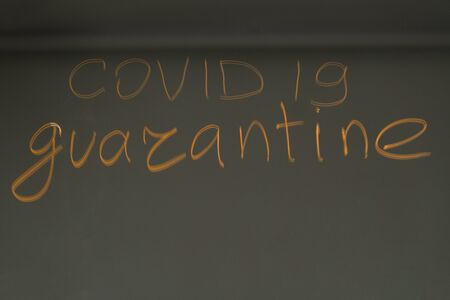 COVID 19
guarantine